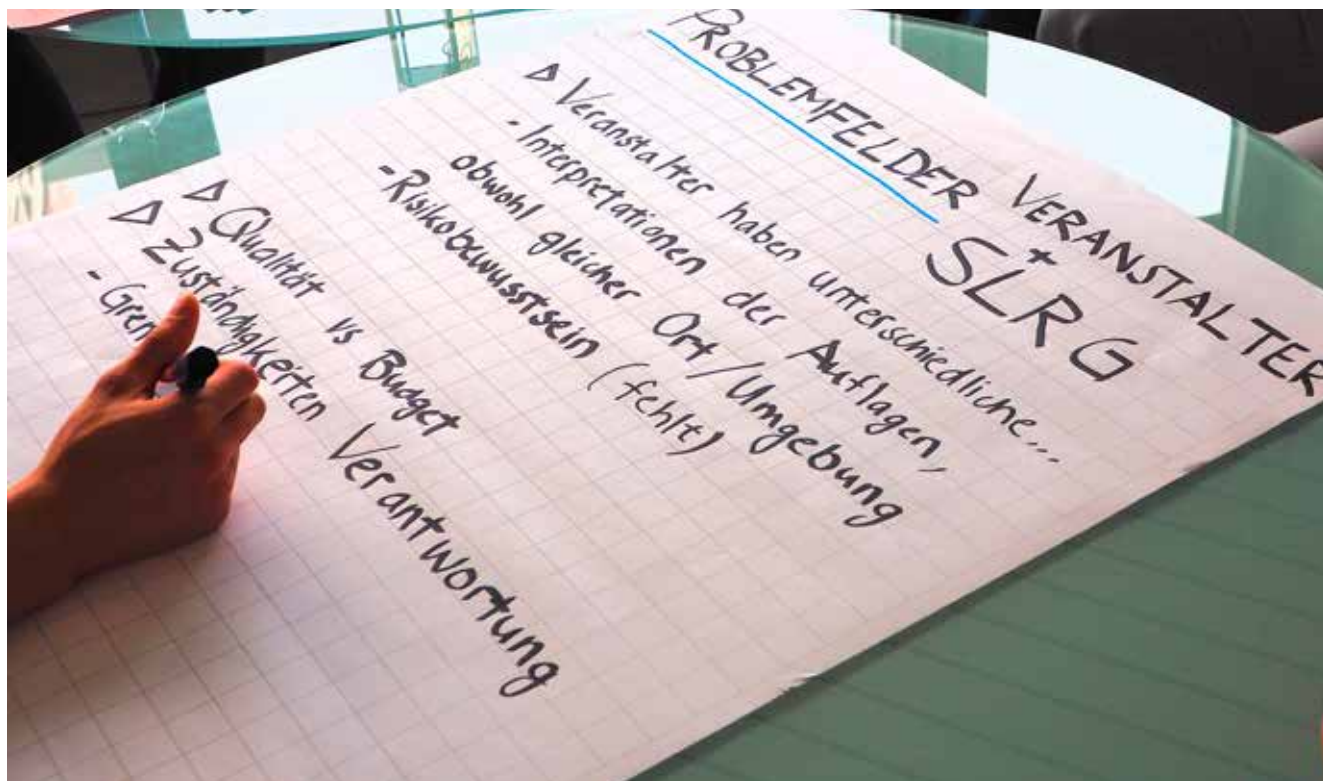 PROBLEMFELDER VERANSTALTER
+
SLRG
▷ Veranstalter haben unterschiedliche...
- Interpretationen der Auflagen,
obwohl gleicher Ort/Umgebung
- Risikobewusstsein (fehlt)
▷ Qualität vs Budget
▷ Zuständigkeiten Verantwortung